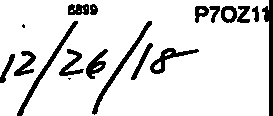 6899 P7OZ11
12/26/18